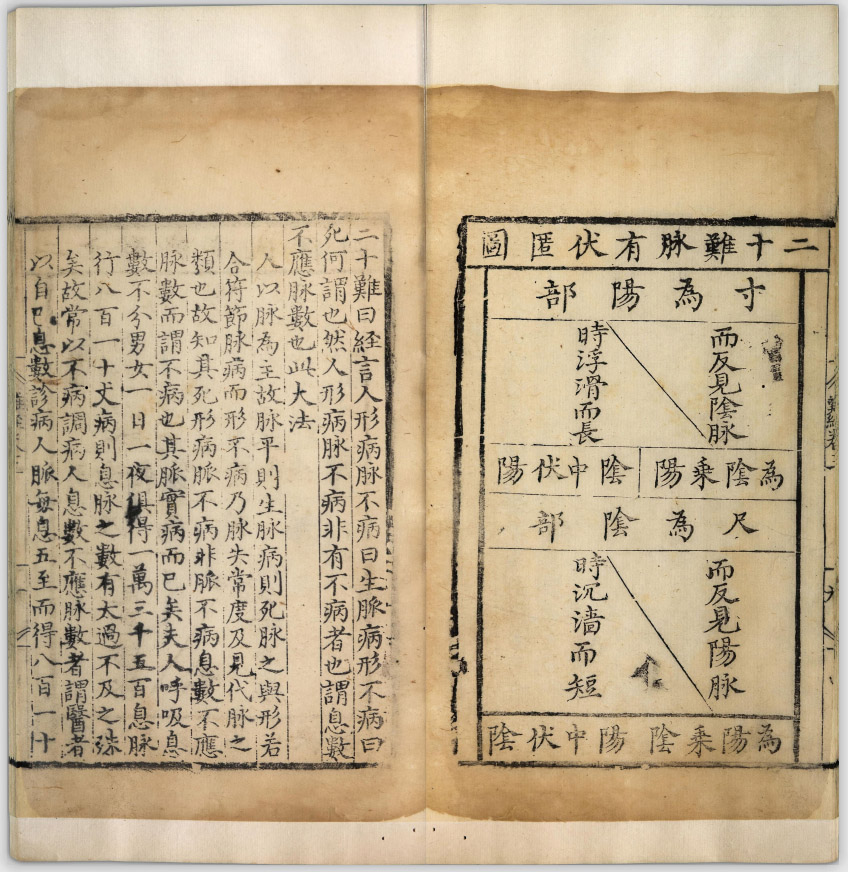 二十難脉有伏匿圖
寸為陽部
而反見陰脉
時浮滑而長
為陰乘陽
陰中伏陽
尺為陰部
而反見陽脉
時沉濇而短
為陽乘陰
陽中伏陰
二十難曰經言人形病脉不病曰生脈病形不病曰
死何謂也然人形病脉不病非有不病者也謂息數
不應脉數也此大法
人以脉為主故脉平則生脉病則死脉之與形若
合符節脉病而形不病乃脉失常度及見代脉之
類也故知其死形病脈不病非脈不病息數不應
脉數而謂不病也其脈實病而已矣夫人呼吸息
數不分男女一日一夜俱得一萬三千五百息脉
行八百一十丈病則息脉之數有太過不及之殊
矣故常以不病調病人息數不應脉數者謂醫者
以自己息數診病人脈每息五至而得八百一十